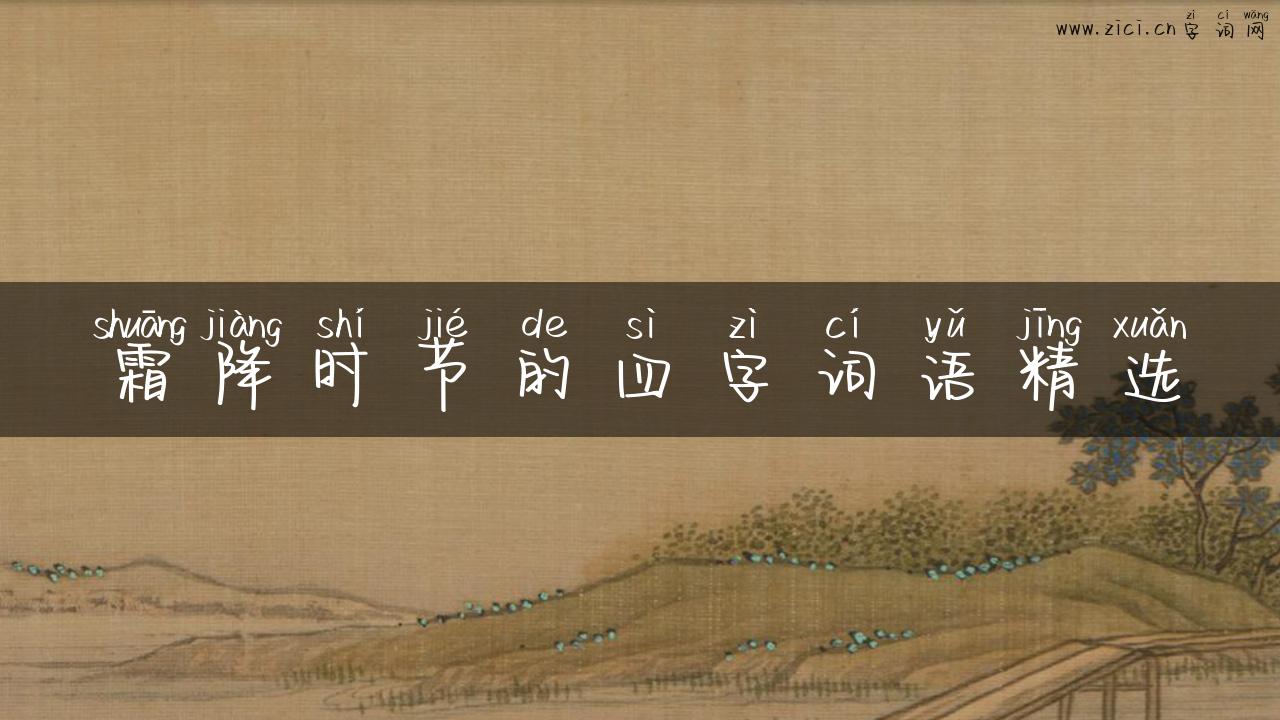 zì cí wǎng
www.zici.cn字词网
shuāng jiàng shí jié de sì zì cí yǔ jīng xuǎn
霜降时节的四字词语精选